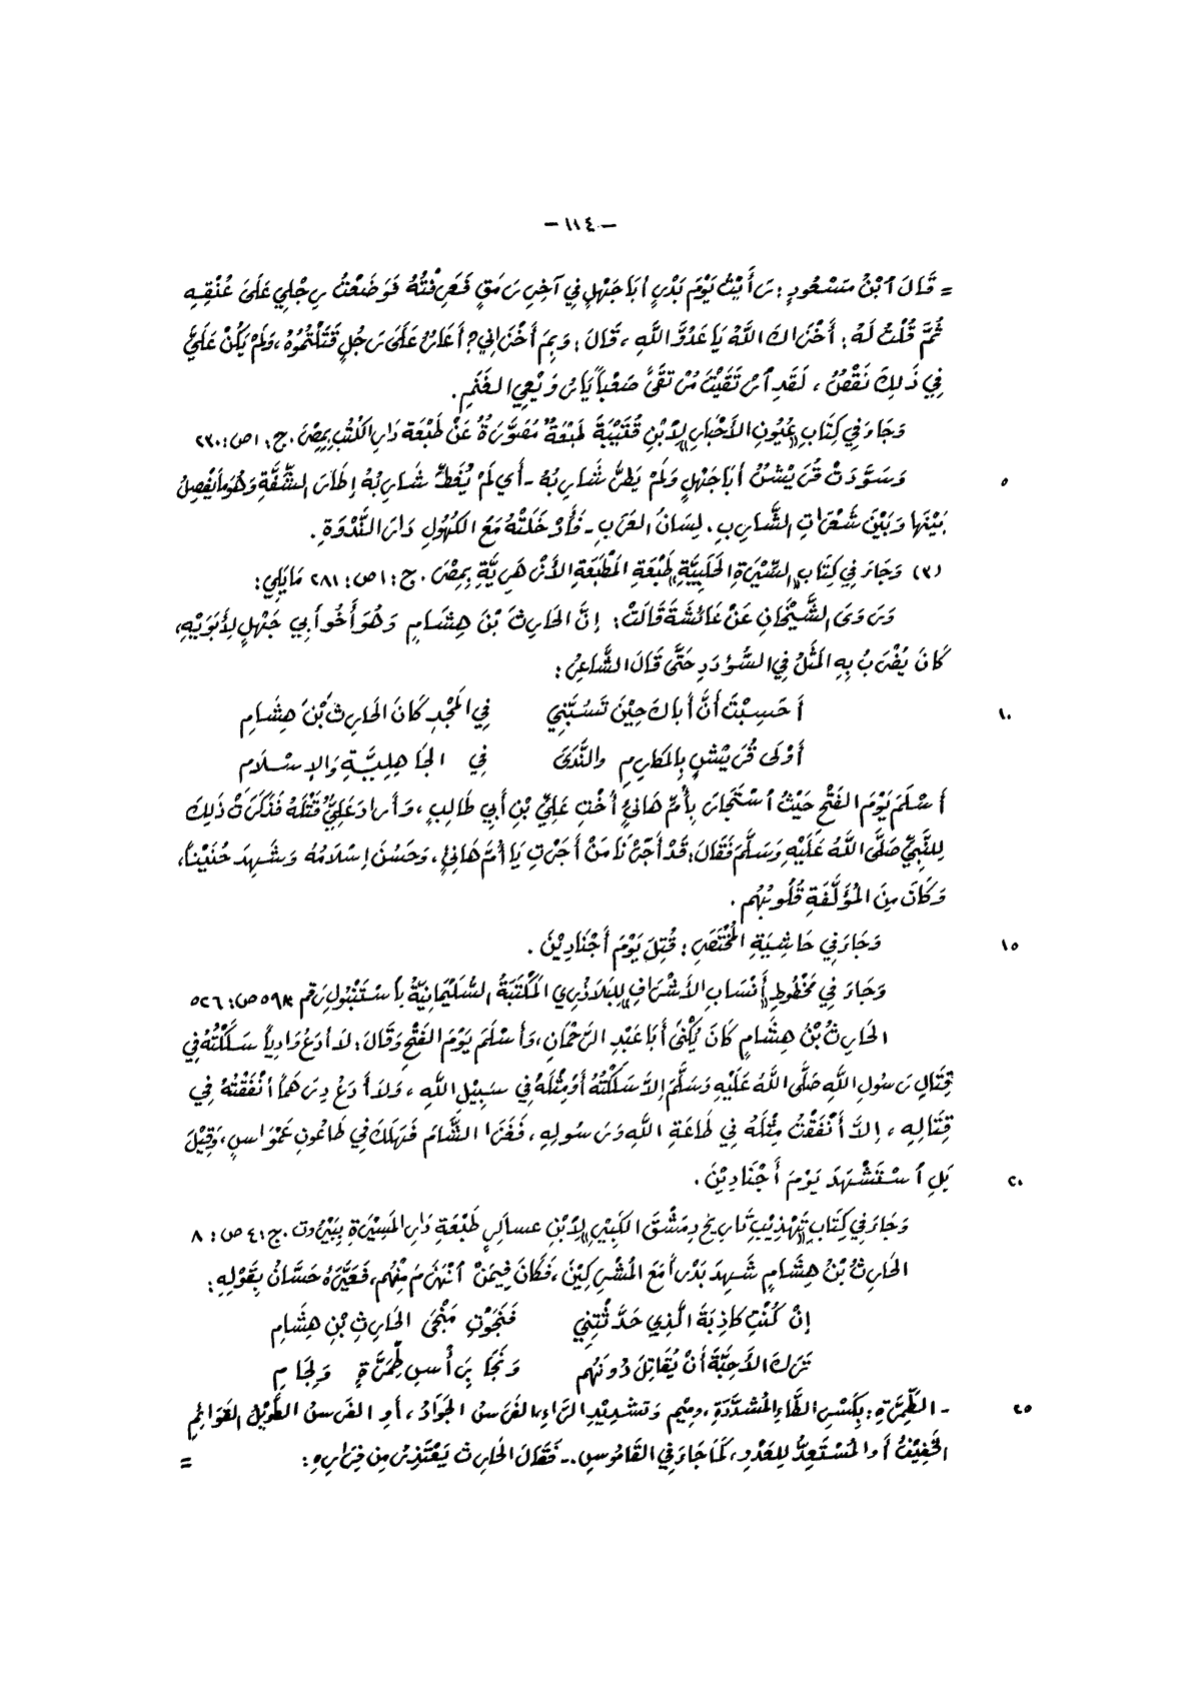 - ١١٤ -
= قَالَ ابْنُ مَسْعُودٍ: رَأَيْتُ يَوْمَ بَدْرٍ أَبَا جَهْلٍ فِي آخِرِ رَمَقٍ فَعَرَفْتُهُ فَوَضَعْتُ رِجْلِي عَلَى عُنُقِهِ
ثُمَّ قُلْتُ لَهُ: أَخْزَاكَ اللَّهُ يَا عَدُوَّ اللَّهِ، قَالَ: وَبِمَ أَخْزَانِي؟ أَعَارٌ عَلَى رَجُلٍ قَتَلْتُمُوهُ، وَلَمْ يَكُنْ عَلَيَّ
فِي ذَلِكَ نَقْصٌ، لَقَدِ ارْتَقَيْتَ مُرْتَقًى صَعْباً يَا رُوَيْعِيَ الغَنَمِ.
وَجَاءَ فِي كِتَابِ «عُيُونِ الأَخْبَارِ» لِابْنِ قُتَيْبَةَ طَبْعَةٌ مُصَوَّرَةٌ عَنْ طَبْعَةِ دَارِ الكُتُبِ بِمِصْرَ. ج: ١ ص: ٢٣٠
٥ وَسَوَّدَتْ قُرَيْشُ أَبَا جَهْلٍ وَلَمْ يَطُرَّ شَارِبُهُ - أَي لَمْ يُغَطِّ شَارِبُهُ إِطَارَ الشَّفَةِ وَهُوَ مَا يَفْصِلُ
بَيْنَهَا وَبَيْنَ شَعَرَاتِ الشَّارِبِ. لِسَانُ العَرَبِ - فَأُدْخَلَتْهُ مَعَ الكُهُولِ دَارَ النَّدْوَةِ.
(٣) وَجَاءَ فِي كِتَابِ «السِّيْرَةِ الحَلَبِيَّةِ» طَبْعَةِ المَطْبَعَةِ الأَزْهَرِيَّةِ بِمِصْرَ. ج: ١ ص: ٢٨١ مَا يَلِي:
وَرَوَى الشَّيْخَانِ عَنْ عَائشَةَ قَالَتْ: إِنَّ الحَارِثَ بْنَ هِشَامٍ وَهُوَ أَخُو أَبِي جَهْلٍ لِأَبَوَيْهِ،
كَانَ يُضْرَبُ بِهِ المَثَلُ فِي السُّؤدَدِ حَتَّى قَالَ الشَّاعِرُ:
١٠ أَحَسِبْتَ أَنَّ أَبَاكَ حِيْنَ تَسُبُّنِي فِي المَجْدِ كَانَ الحَارِثَ بْنَ هِشَامِ
أَوْلَى قُرَيْشٍ بِالمَكَارِمِ والنَّدَى فِي الجَاهِلِيَّةِ وَالإِسْلَامِ
أَسْلَمَ يَوْمَ الفَتْحِ حَيْثُ اسْتَجَارَ بِأُمِّ هَانِئٍ أُخْتِ عَلِيِّ بْنِ أَبِي طَالِبٍ، وَأَرَادَ عَلِيٌّ قَتْلَهُ فَذَكَرَتْ ذَلِكَ
لِلنَّبِيِّ صَلَّى اللَّهُ عَلَيْهِ وَسَلَّمَ فَقَالَ: قَدْ أَجَرْنَا مَنْ أَجَرْتِ يَا أُمَّ هَانِئٍ، وَحَسُنَ إِسْلَامُهُ وَشَهِدَ حُنَيْناً،
وَكَانَ مِنَ المُؤَلَّفَةِ قُلُوبُهُم.
١٥ وَجَاءَ فِي حَاشِيَةِ المُخْتَصَرِ: قُتِلَ يَوْمَ أَجْنَادِيْنَ.
وَجَاءَ فِي مَخْطُوطِ «أَنْسَابِ الأَشْرَافِ» لِلبَلاذُرِي المَكْتَبَةُ السُّلَيْمَانِيَّةُ بِاسْتَنْبُول رَقم ٥٩٨ ص: ٥٢٦
الحَارِثُ بْنُ هِشَامٍ كَانَ يُكْنَى أَبَا عَبْدِ الرَّحْمَانِ، وَأَسْلَمَ يَوْمَ الفَتْحِ وَقَالَ: لَا أَدَعُ وَادِياً سَلَكْتُهُ فِي
قِتَالِ رَسُولِ اللَّهِ صَلَّى اللَّهُ عَلَيْهِ وَسَلَّمَ إِلاَّ سَلَكْتُهُ أَوْ مِثْلَهُ فِي سَبِيْلِ اللَّهِ، وَلَا أَدَعُ دِرْهَماً أَنْفَقْتُهُ فِي
قِتَالِهِ، إِلاَّ أَنْفَقْتُ مِثْلَهُ فِي طَاعَةِ اللَّهِ وَرَسُولِهِ، فَغَزَا الشَّأمَ فَهَلَكَ فِي طَاعُونِ عَمْوَاسٍ، وَقِيْلَ
٢٠ بَلِ اسْتَشْهَدَ يَوْمَ أَجْنَادِيْنَ.
وَجَاءَ فِي كِتَابِ «تَهْذِيْبِ تَارِيخِ دِمَشْقَ الكَبِيْرِ» لِابْنِ عساكِرٍ طَبْعَةِ دَارِ المَسِيْرَةِ بِبَيْرُوت. ج: ٤ ص: ٨
الحَارِثُ بْنُ هِشَامٍ شَهِدَ بَدْراً مَعَ المُشْرِكِيْنَ، فَكَانَ فِيمَنْ انْهَزَمَ مِنْهُم، فَعَيَّرَهُ حَسَّانُ بِقَوْلِهِ:
إِنْ كُنْتِ كَاذِبَةَ الَّذِي حَدَّثْتِنِي فَنَجَوْتِ مَنْجَى الحَارِثِ بْنِ هِشَامِ
تَرَكَ الأَحِبَّةَ أَنْ يُقَاتِلَ دُونَهُم وَنَجَا بِرَأْسِ طِمِرَّةٍ وَلِجَامِ
٢٥ - الطِّمِرَّةِ: بِكَسْرِ الطَّاءِ المُشَدَّدَةِ، وَمِيْمٍ وَتَشْدِيْدِ الرَّاءِ، الفَرَسُ الجَوَادُ، أَوِ الفَرَسُ الطَّوِيْلُ القَوَائِمِ
الخَفِيْفُ أَو المُسْتَعِدُّ لِلعَدْوِ، كَمَا جَاءَ فِي القَامُوسِ. - فَقَالَ الحَارِث يَعْتَذِرُ مِن فِرَارِهِ: =